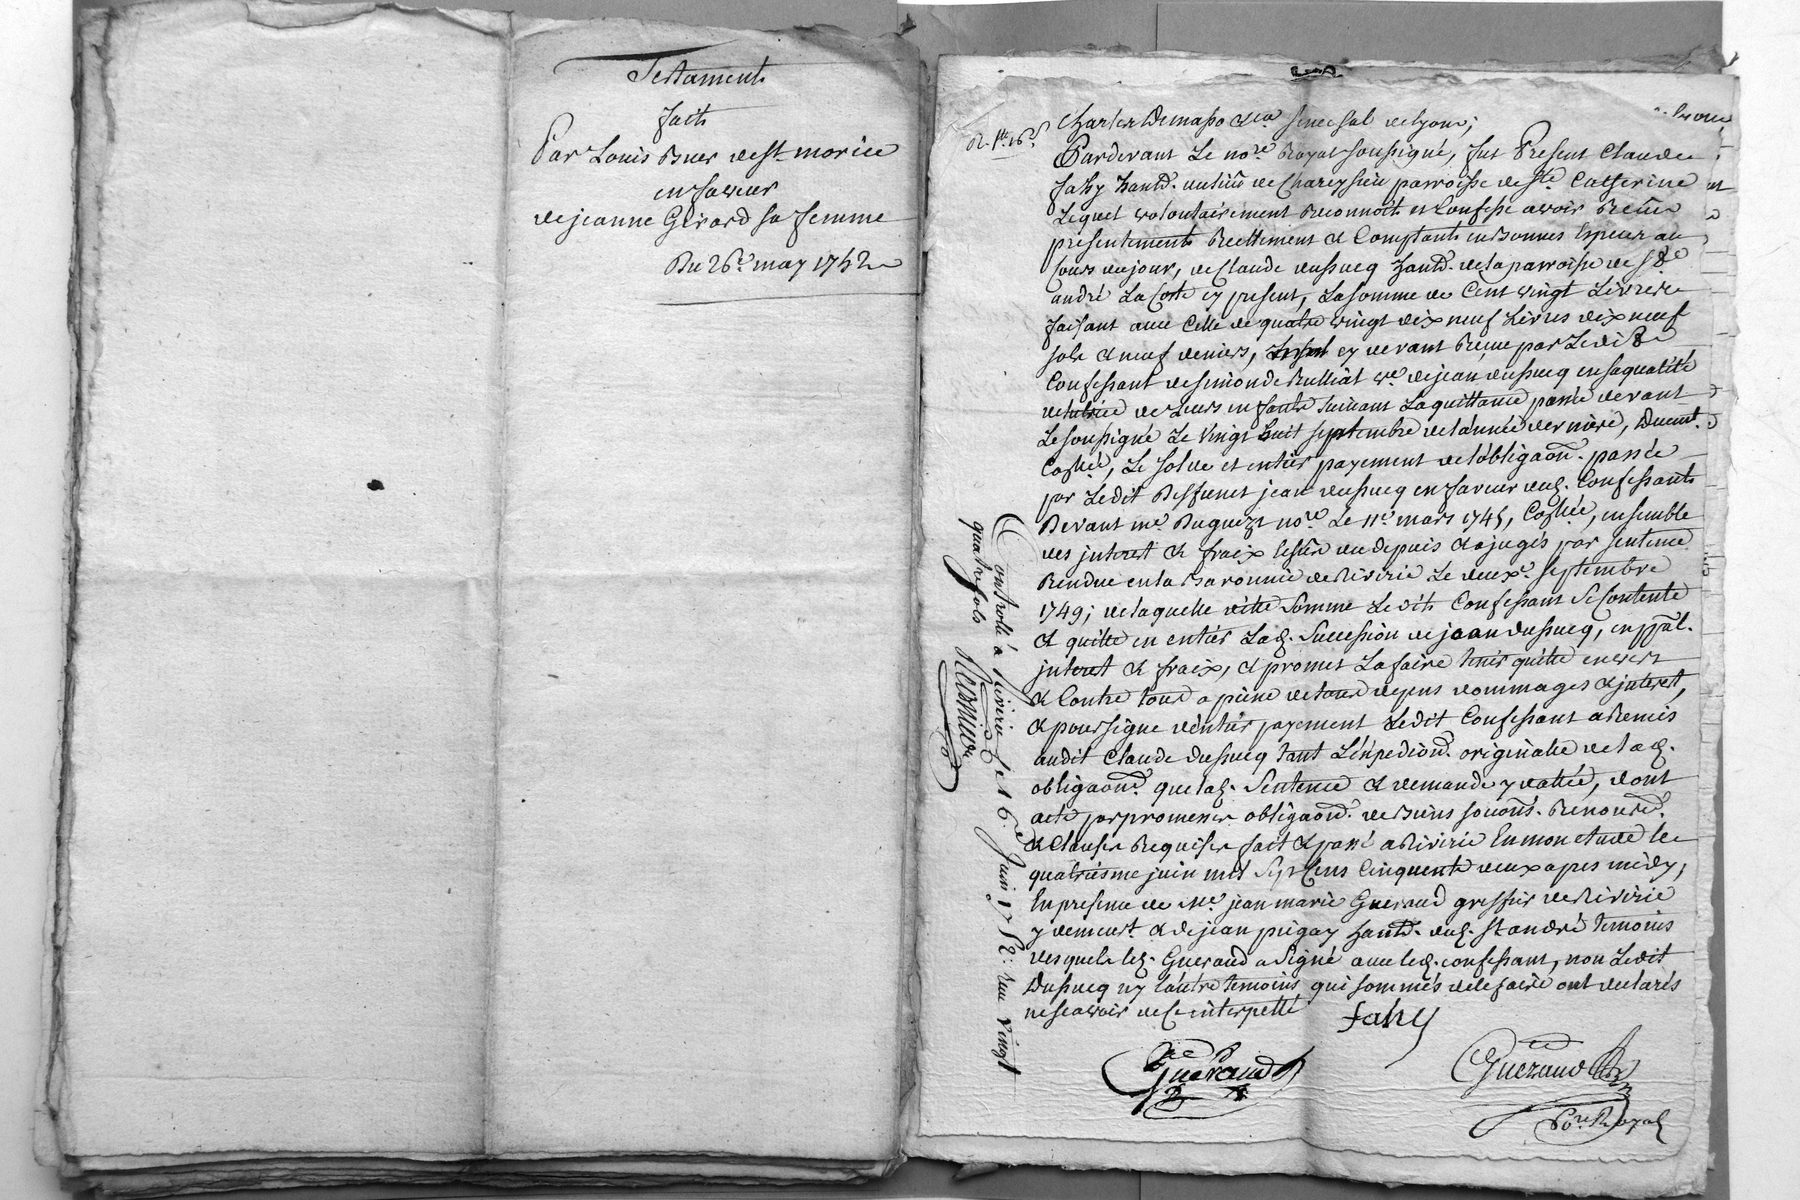 Testament
fait
Par Louis Buer de st. morice
en faveur
de jeanne Gerard sa femme
Du 26e. may 1752
Charles Demaso &ca senechal de lyon;
Pardevant Le nore. Royal soussigné, fut Present Claude
fahy habt. du lieu de Chareysieu parroisse de ste Catherine
Lequel volontairement Reconnoit et Confesse avoir Reçu
presentement Reellement & Comptant en Bonnes Especes au
Cours du jour, de Claude dussucq habt. de la parroisse de st
andré La Coste cy present, La somme de Cent vingt Livres
faisant avec Celle de quatre vingt dix neuf Livres dix neuf
sols & neuf deniers, cy devant Reçue par Ledit
Confessant de simonde Rulliat ve. de jean dussucq en sa qualité
de tutrice de Leurs enfants suivant La quittance passée devant
Le soussigné Le vingt huit septembre de l'année derniere, Duemt.
Collée, Le solde et entier payement de l'obligaon. passée
par Ledit Deffunct jean dussucq en faveur dud. Confessant
Devant me Duguezt nore Le 11e mars 1745, Collée, ensemble
des interet & fraix depuis adjugés par sentence
Rendue en la Baronnie de Riverie Le deuxe. septembre
1749; de laquelle ditte somme Ledit Confessant se Contente
& quitte en entier Lad. succession de jean dussucq, en ppal.
interet & fraix, & promet La faire tenir quitte envers
& Contre tous a peine de tous depens dommages & interet,
& pour signe d'entier payement Ledit Confessant a Remis
audit Claude Dussucq tant L'expedion. originalle de lad.
obligaon. que lad. sentence & demande y dattée, dont
acte par promesses obligaon. de Biens soumis. Renoncé.
& Clauses Requises fait & passé a Riverie En mon etude le
quatriesme juin mil sept Cens Cinquante deux apres midy,
En presence de me. jean marie Gueraud greffier de Riverie
y demeurt. & de jean pregay habt. dud. st andré temoins
desquels led. Gueraud a signé avec led. confessant, non Ledit
Dussucq ny l'autre temoins qui sommés de le faire ont declarés
ne sçavoir de Ce interpellé
fahy
Gueraud
Gueraud
Nore Royal
Controllé a Riverie Le 16e. Juin 1752. Reçu vingt
quatre sols